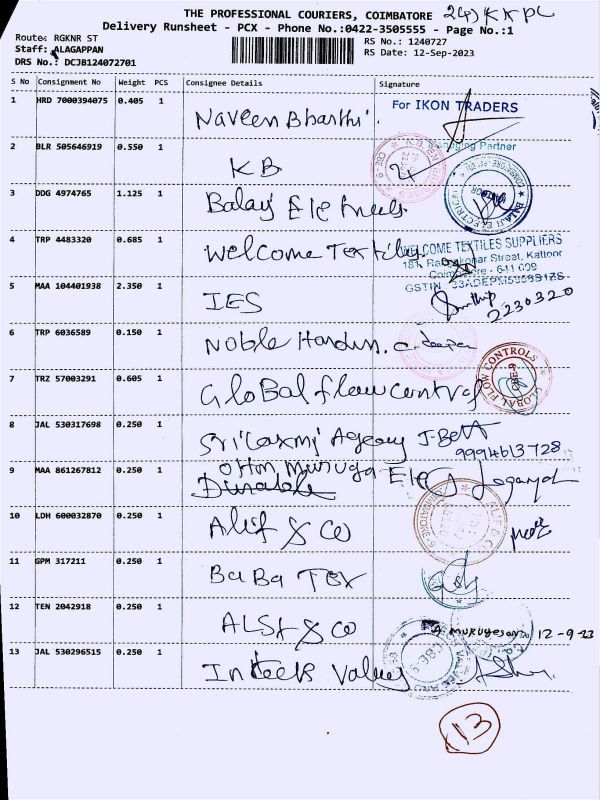 THE PROFESSIONAL COURIERS, COIMBATORE
Delivery Runsheet - PCX - Phone No.:0422-3505555 - Page No.:1
Route: RGKNR ST
RS No.: 1240727
Staff: ALAGAPPAN
RS Date: 12-Sep-2023
DRS No.: DCJB124072701
S No Consignment No Weight PCS Consignee Details Signature
1 HRD 7000394075 0.405 1 Naveen Bharthi. For IKON TRADERS
Managing Partner
2 BLR 505646919 0.550 1 KB
3 DDG 4974765 1.125 1 Balaji
4 TRP 4483320 0.685 1 Welcome Textiles WELCOME TEXTILES SUPPLIERS
Street, Kattoor
Coimbatore - 641 009
GSTIN
5 MAA 104401938 2.350 1 IES
2230320
6 TRP 6036589 0.150 1 Noble
7 TRZ 57003291 0.605 1 Global flow control GLOBAL FLOW CONTROLS
CBE-9
8 JAL 530317698 0.250 1 Sri Laxmi Agency
9994613728
9 MAA 861267812 0.250 1 Ohm Muruga Ele
10 LDH 600032870 0.250 1 Alif & Co
11 GPM 317211 0.250 1 BaBa Tex
12 TEN 2042918 0.250 1 & Co
A. MURUGESAN 12-9-23
13 JAL 530296515 0.250 1 Inteck Valves
CBE-9
13